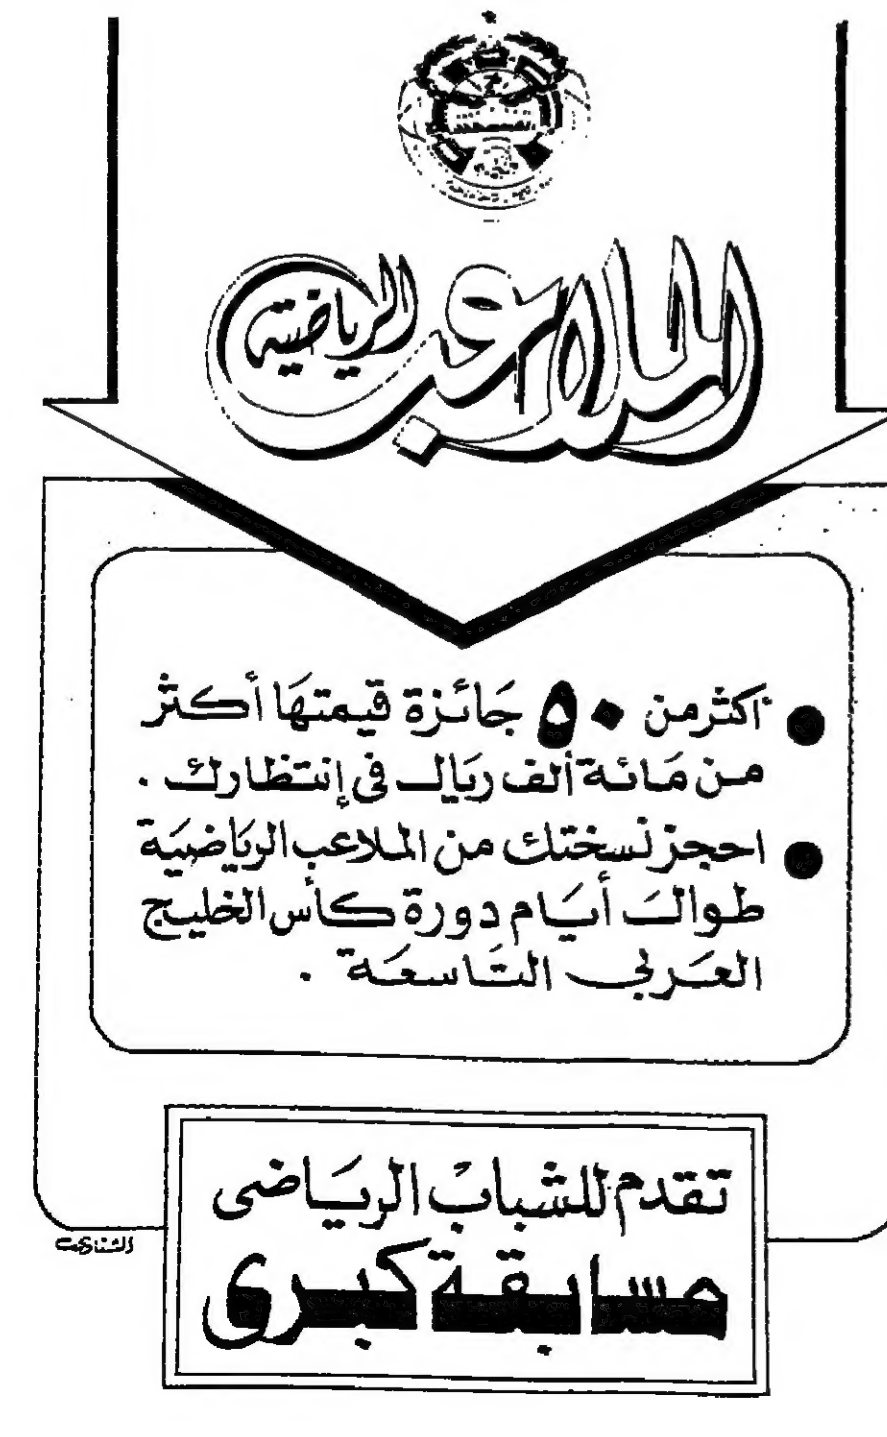 الملاعب
الرياضية
أكثر من ٥٠ جائزة قيمتها أكثر
من مائة ألف ريال في إنتظارك .
احجز نسختك من الملاعب الرياضية
طوال أيام دورة كأس الخليج
العربي التاسعة .
تقدم للشباب الرياضى
مسابقة كبرى